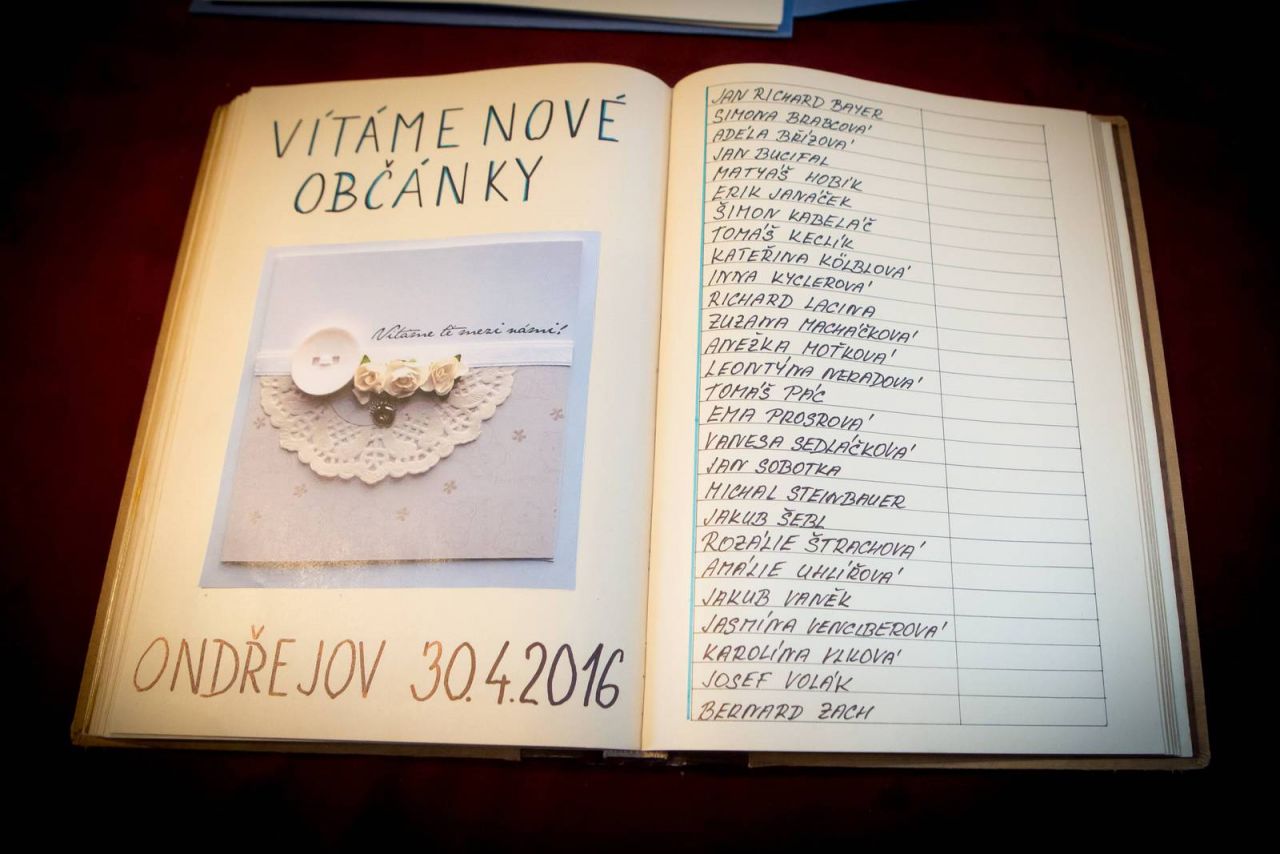 VÍTÁME NOVÉ
OBČÁNKY
Vítáme tě mezi námi!
ONDŘEJOV 30.4.2016
JAN RICHARD BAYER
SIMONA BRABCOVÁ
ADÉLA BŘÍZOVÁ
JAN BUCIFAL
MATYÁŠ HOBÍK
ERIK JANÁČEK
ŠIMON KABELÁČ
TOMÁŠ KECLÍK
KATEŘINA KÖLBLOVÁ
INNA KYCLEROVÁ
RICHARD LACINA
ZUZANA MACHÁČKOVÁ
ANEŽKA MOŤKOVÁ
LEONTÝNA NERADOVÁ
TOMÁŠ PÁC
EMA PROSROVÁ
VANESA SEDLÁČKOVÁ
JAN SOBOTKA
MICHAL STEINBAUER
JAKUB ŠEBL
ROZÁLIE ŠTRACHOVÁ
AMÁLIE UHLÍŘOVÁ
JAKUB VANĚK
JASMÍNA VENCLBEROVÁ
KAROLÍNA VLKOVÁ
JOSEF VOLÁK
BERNARD ZACH